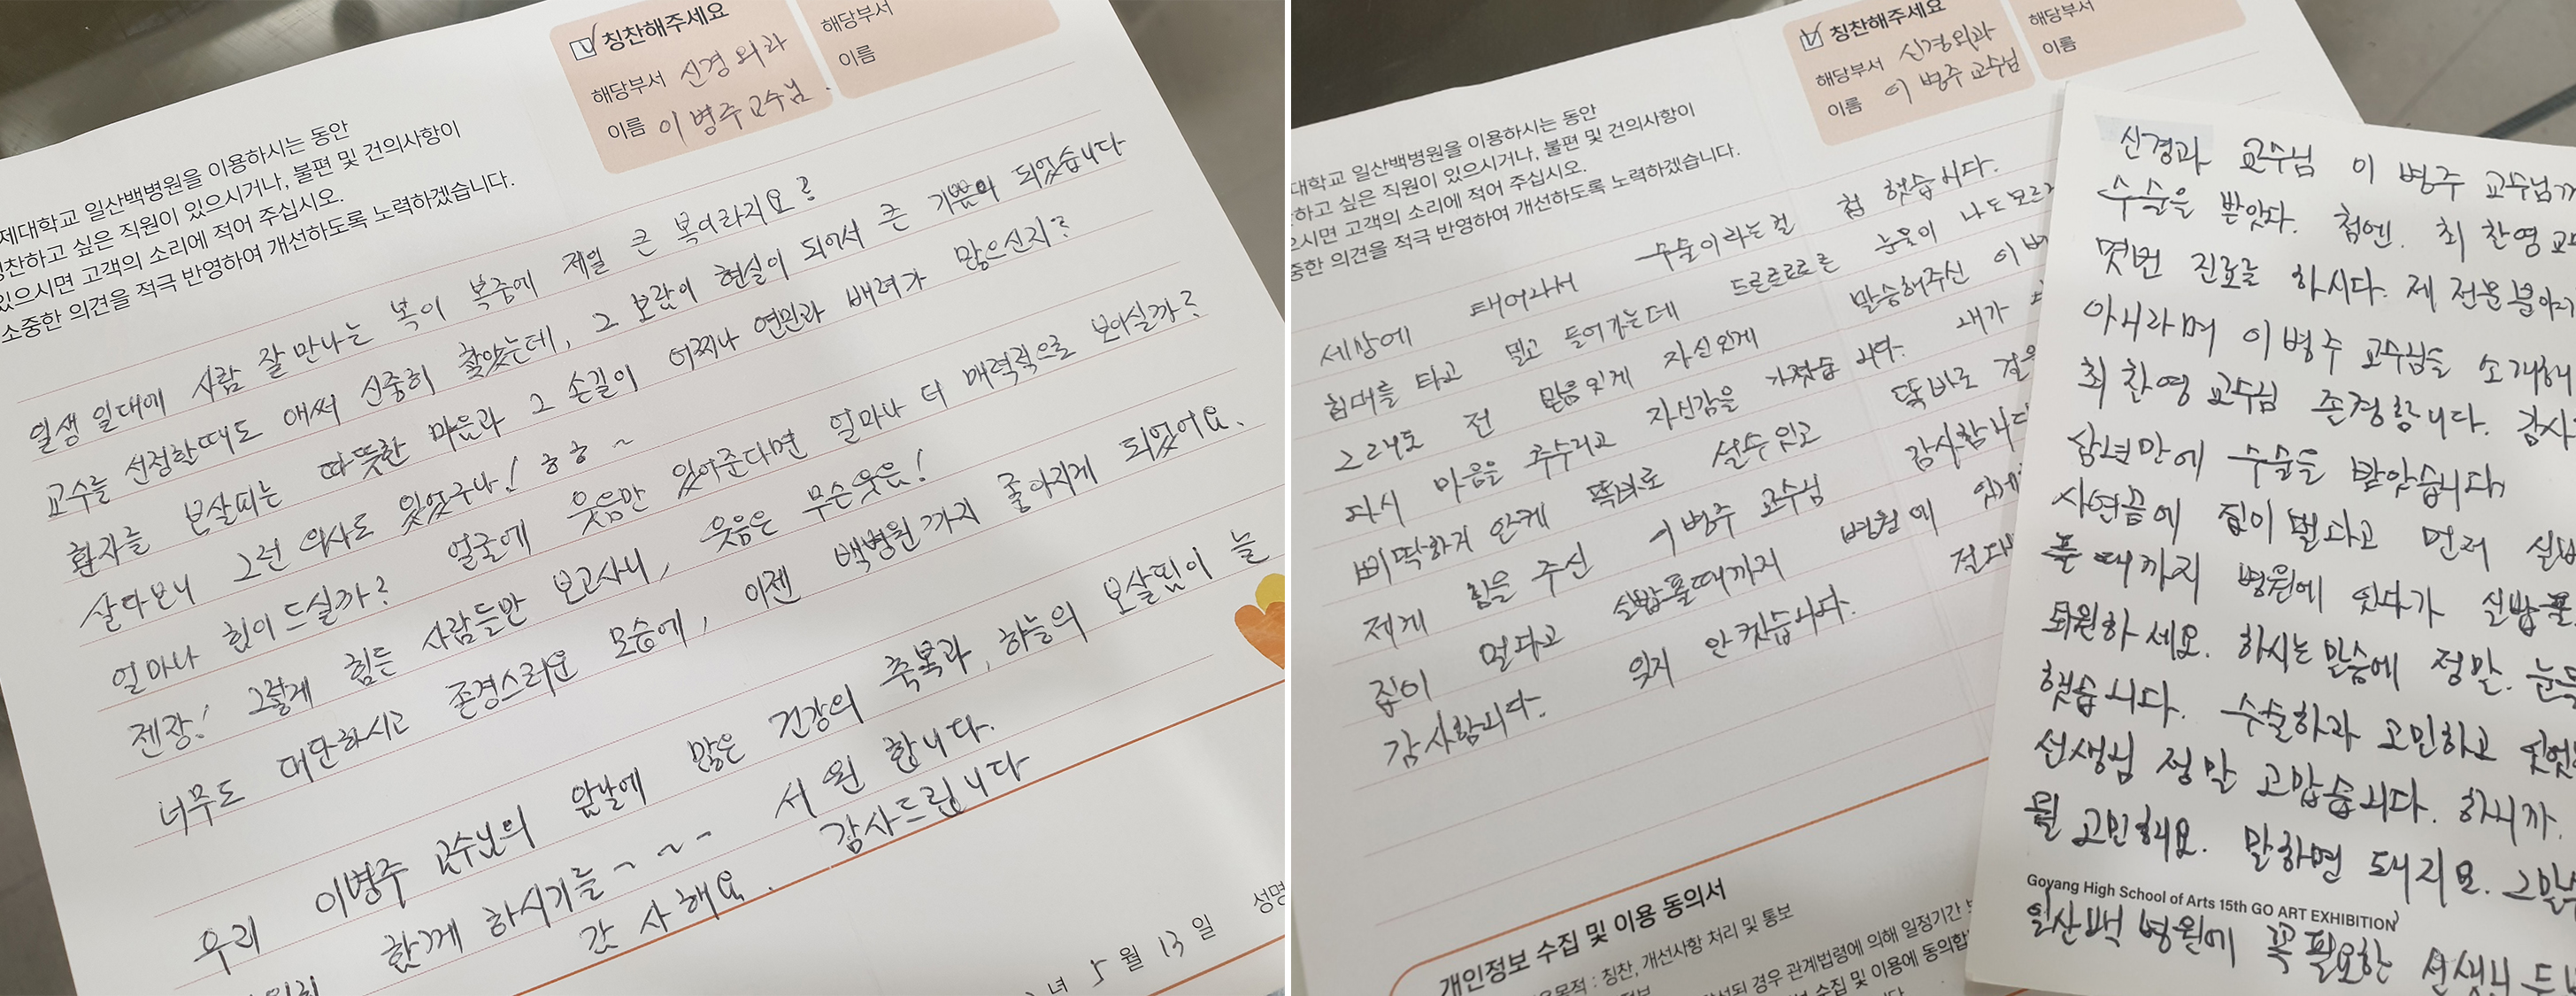 칭찬해주세요
해당부서 신경외과
이름 이병주교수님.
해당부서
이름
제대학교 일산백병원을 이용하시는 동안
칭찬하고 싶은 직원이 있으시거나, 불편 및 건의사항이
있으시면 고객의 소리에 적어 주십시오.
소중한 의견을 적극 반영하여 개선하도록 노력하겠습니다.
일생 일대에 사람 잘 만나는 복이 복중에 제일 큰 복이라지요?
교수를 선정할때도 애써 신중히 찾았는데, 그 보람이 현실이 되어서 큰 기쁨이 되었습니다
환자를 보살피는 따뜻한 마음과 그 손길이 어찌나 연민과 배려가 많으신지?
살다보니 그런 의사도 있었구나! ㅎㅎ ~
얼마나 힘이 드실까? 얼굴에 웃음만 있어준다면 얼마나 더 매력적으로 보이실까?
젠장! 그렇게 힘든 사람들만 보고사니, 웃음은 무슨웃음!
너무도 대단하시고 존경스러운 모습에, 이젠 백병원까지 좋아지게 되었어요.
우리 이병주 교수님의 앞날에 많은 건강의 축복과, 하늘의 보살핌이 늘
함께 하시기를~~~ 서원 합니다.
감사해요. 감사드립니다
년 5 월 13 일 성명
칭찬해주세요
해당부서 신경외과
이름 이병주 교수님
해당부서
이름
대학교 일산백병원을 이용하시는 동안
하고 싶은 직원이 있으시거나, 불편 및 건의사항이
으시면 고객의 소리에 적어 주십시오.
중한 의견을 적극 반영하여 개선하도록 노력하겠습니다.
세상에 태어나서 수술이라는걸 첨 했습니다.
침대를 타고 밀고 들어가는데 드르르르르 눈물이 나도모르
그래도 전 믿음있게 자신있게 말슴해주신 이병
다시 마음을 추수리고 자신감을 가졌습니다. 내가
삐딱하지 안케 똑바로 설수있고 똑바로 걸을
저게 힘을 주신 이병주 교수님 감사합니다
집이 멀다고 실밥풀때까지 병원에 있게
감사함니다. 잊지 안컷습니다. 절대
개인정보 수집 및 이용 동의서
목적 : 칭찬, 개선사항 처리 및 통보
된 경우 관계법령에 의해 일정기간
수집 및 이용에 동의합
신경과 교수님 이 병주 교수님
수술을 받았다. 첨엔. 최 찬영 교
몇번 진료를 하시다. 제 전문분야
아니라며 이병주 교수님을 소개해
최찬영 교수님 존경합니다. 감사
삼년만에 수술을 받았습니다
사연끔에 집이 멀다고 먼저 실밥
풀 때까지 병원에 잇다가 실밥풀
퇴원하세요. 하시는 말슴에 정말. 눈
했습니다. 수술하과 고민하고 잇었
선생님 정말 고맙습니다. 하니까.
뭘 고민해요. 말하면 돼지요. 그말
Goyang High School of Arts 15th GO ART EXHIBITION
일산백병원에 꼭필요한 선생니